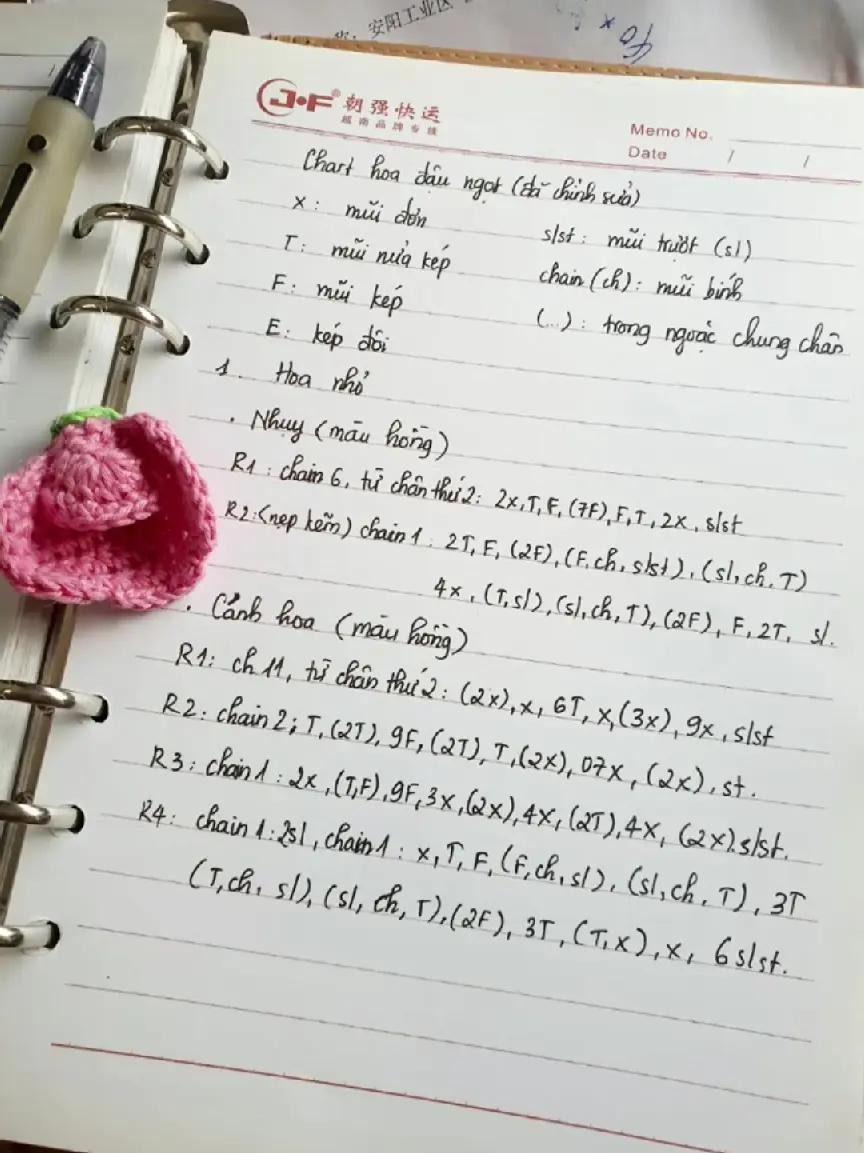 称: 安阳工业区
40 *
J·F® 朝强快运
越南品牌专线
Memo No.
Date / /
Chart hoa đậu ngọt (đã chỉnh sửa)
X: mũi đơn
slst: mũi trượt (sl)
T: mũi nửa kép
chain (ch): mũi bính
F: mũi kép
(...): trong ngoặc chung chân
E: kép đôi
1. Hoa nhỏ
. Nhụy (màu hồng)
R1: chain 6, từ chân thứ 2: 2x, T, F, (7F), F, T, 2x, slst
R2: (nẹp kẽm) chain 1: 2T, F, (2F), (F, ch, slst), (sl, ch, T)
4x, (T, sl), (sl, ch, T), (2F), F, 2T, sl.
. Cánh hoa (màu hồng)
R1: ch 11, từ chân thứ 2: (2x), x, 6T, x, (3x), 9x, slst
R2: chain 2; T, (2T), 9F, (2T), T, (2x), 07x, (2x), st.
R3: chain 1: 2x, (T,F), 9F, 3x, (2x), 4x, (2T), 4x, (2x). slst.
R4: chain 1: 2sl, chain 1: x, T, F, (F, ch, sl), (sl, ch, T), 3T
(T, ch, sl), (sl, ch, T), (2F), 3T, (T, x), x, 6 slst.